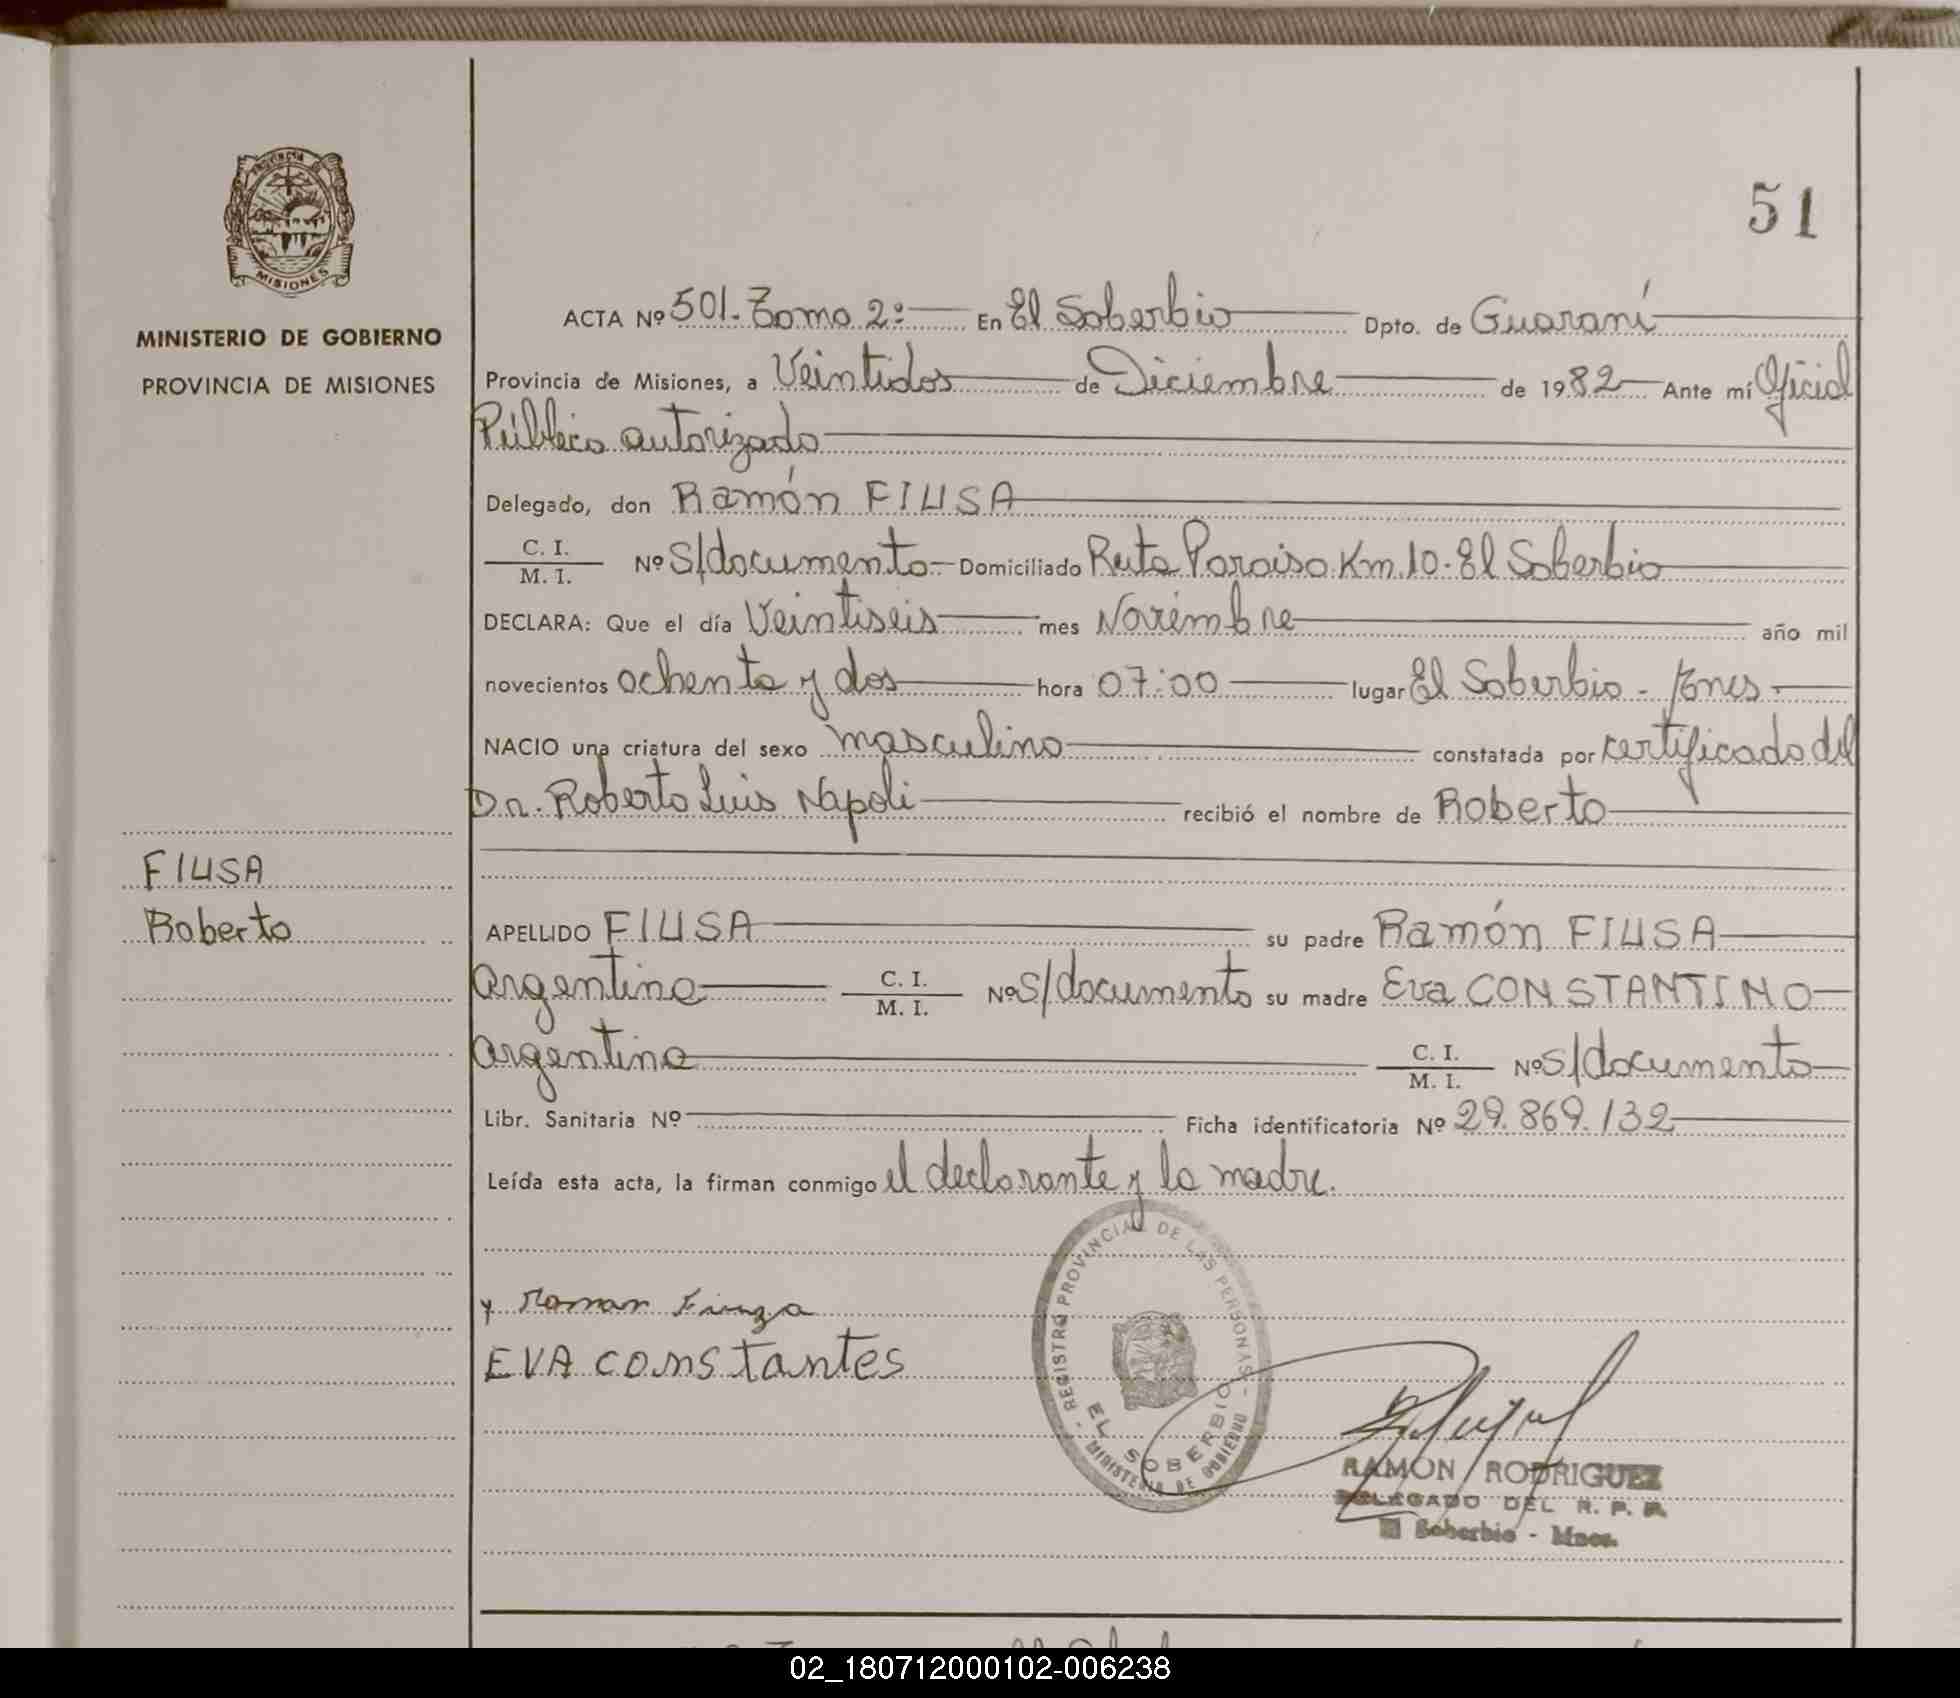 51
PROVINCIA
MISIONES
MINISTERIO DE GOBIERNO
PROVINCIA DE MISIONES
FIUSA
Roberto
ACTA Nº 501. Tomo 2º En El Soberbio Dpto. de Guaraní
Provincia de Misiones, a Veintidos de Diciembre de 1982 Ante mí Oficial
Público autorizado
Delegado, don Ramón FIUSA
C. I.
M. I. Nº S/documento Domiciliado Ruta Paraiso Km. 10. El Soberbio
DECLARA: Que el día Veintiseis mes Noviembre año mil
novecientos ochenta y dos hora 07:00 lugar El Soberbio - Mnes.
NACIO una criatura del sexo masculino constatada por certificado del
Dr. Roberto Luis Napoli recibió el nombre de Roberto
APELLIDO FIUSA su padre Ramón FIUSA
argentino C. I.
M. I. Nº S/documento su madre Eva CONSTANTINO
argentina C. I.
M. I. Nº S/documento
Libr. Sanitaria Nº Ficha identificatoria Nº 29.869.132
Leída esta acta, la firman conmigo el declarante y la madre.
REGISTRO PROVINCIAL DE LAS PERSONAS -
EL SOBERBIO
MINISTERIO DE GOBIERNO
y Raman Fiuza
EVA constantes
RAMON RODRIGUEZ
DELEGADO DEL R. P. P.
El Soberbio - Mnes.
02_180712000102-006238